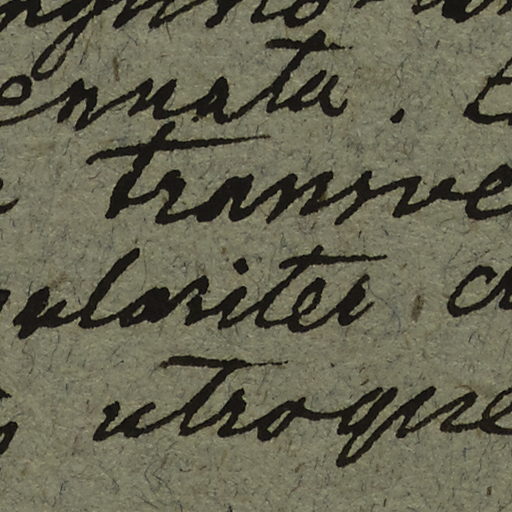 ennata.
transve
gulariter cr
utroque